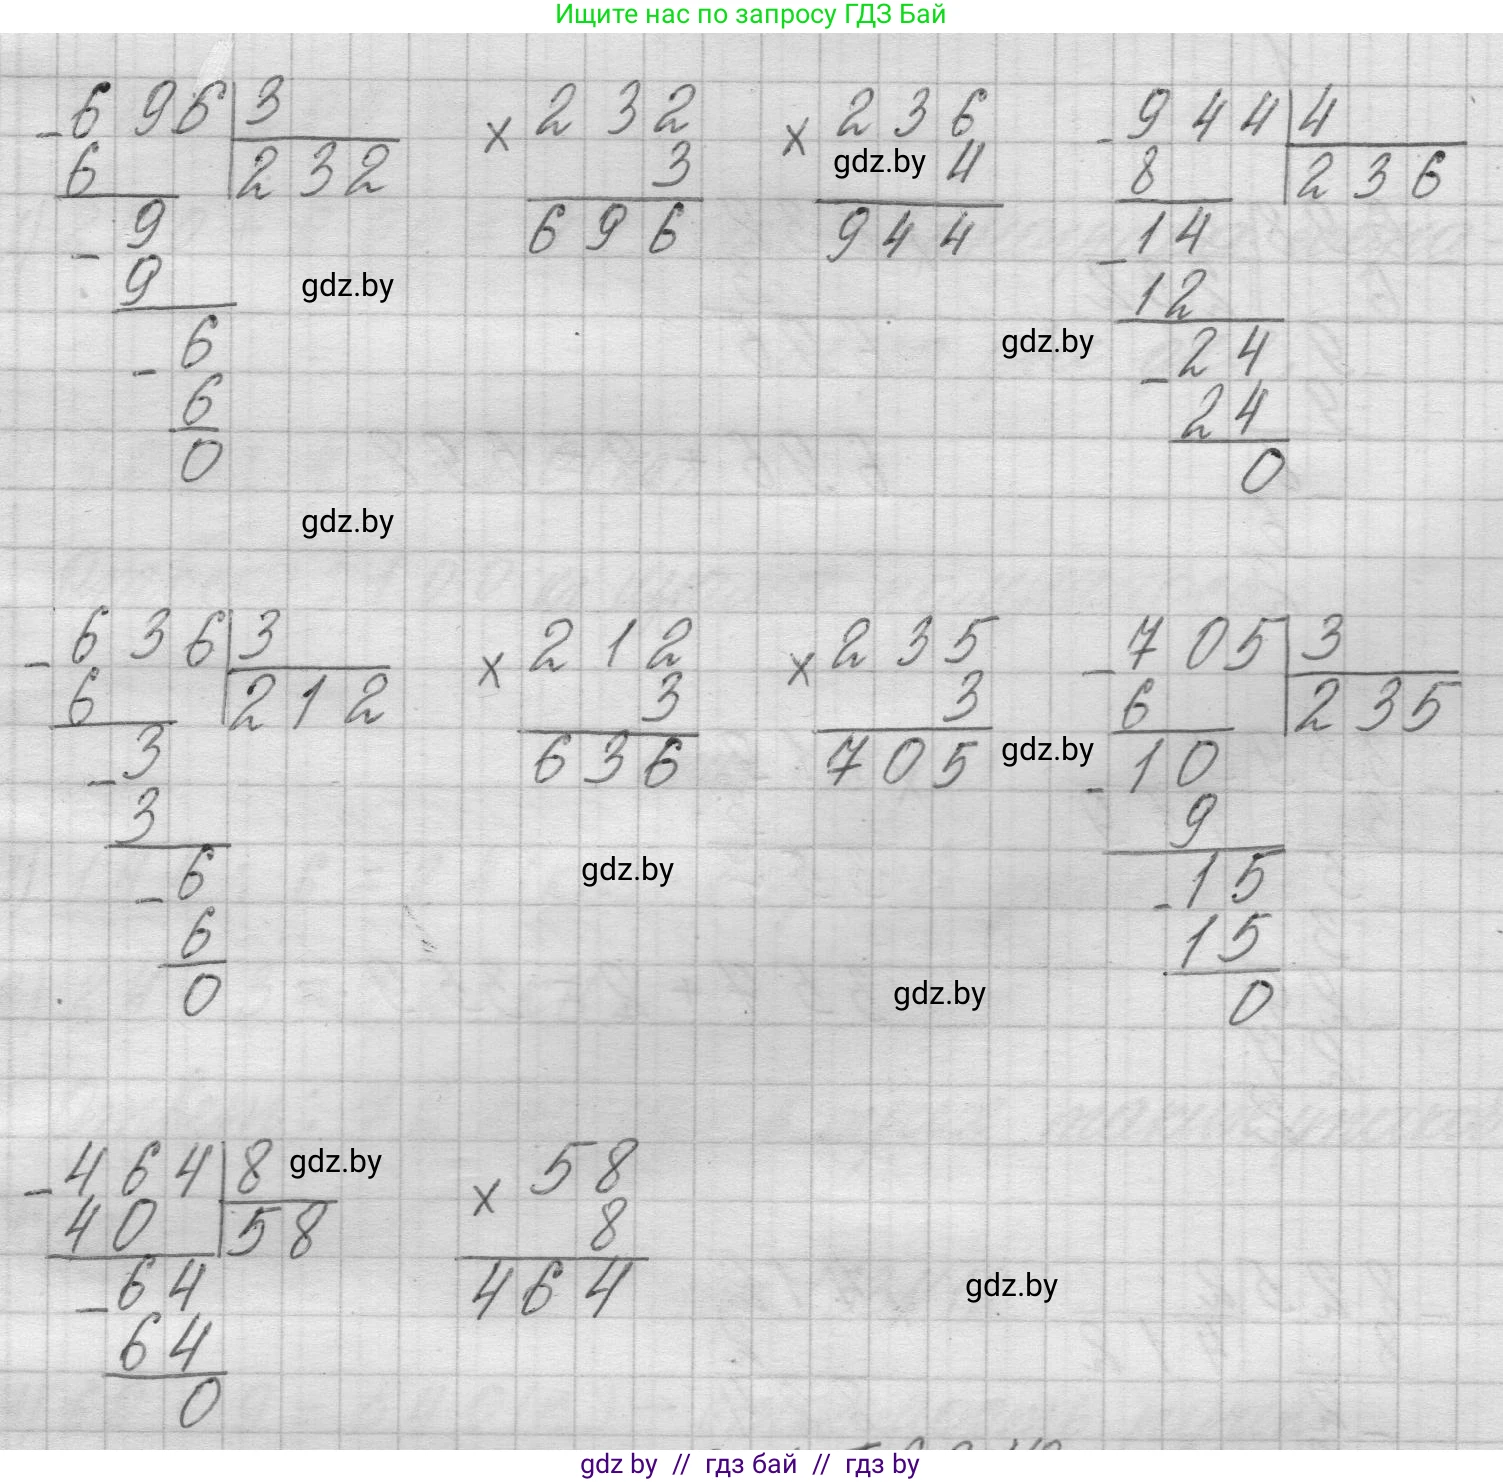 Ищите нас по запросу ГДЗ Бай
- 6 9 6 | 3
6 | 2 3 2
- 9
9
- 6
6
0
× 2 3 2
3
6 9 6
× 2 3 6
gdz.by 4
9 4 4
- 9 4 4 | 4
8 | 2 3 6
- 1 4
1 2
- 2 4
2 4
0
gdz.by
gdz.by
gdz.by
- 6 3 6 | 3
6 | 2 1 2
- 3
3
- 6
6
0
× 2 1 2
3
6 3 6
× 2 3 5
3
7 0 5
gdz.by
- 7 0 5 | 3
6 | 2 3 5
- 1 0
9
- 1 5
1 5
0
gdz.by
gdz.by
- 4 6 4 | 8
4 0 | 5 8
- 6 4
6 4
0
gdz.by
× 5 8
8
4 6 4
gdz.by
gdz.by // гдз бай // гдз by